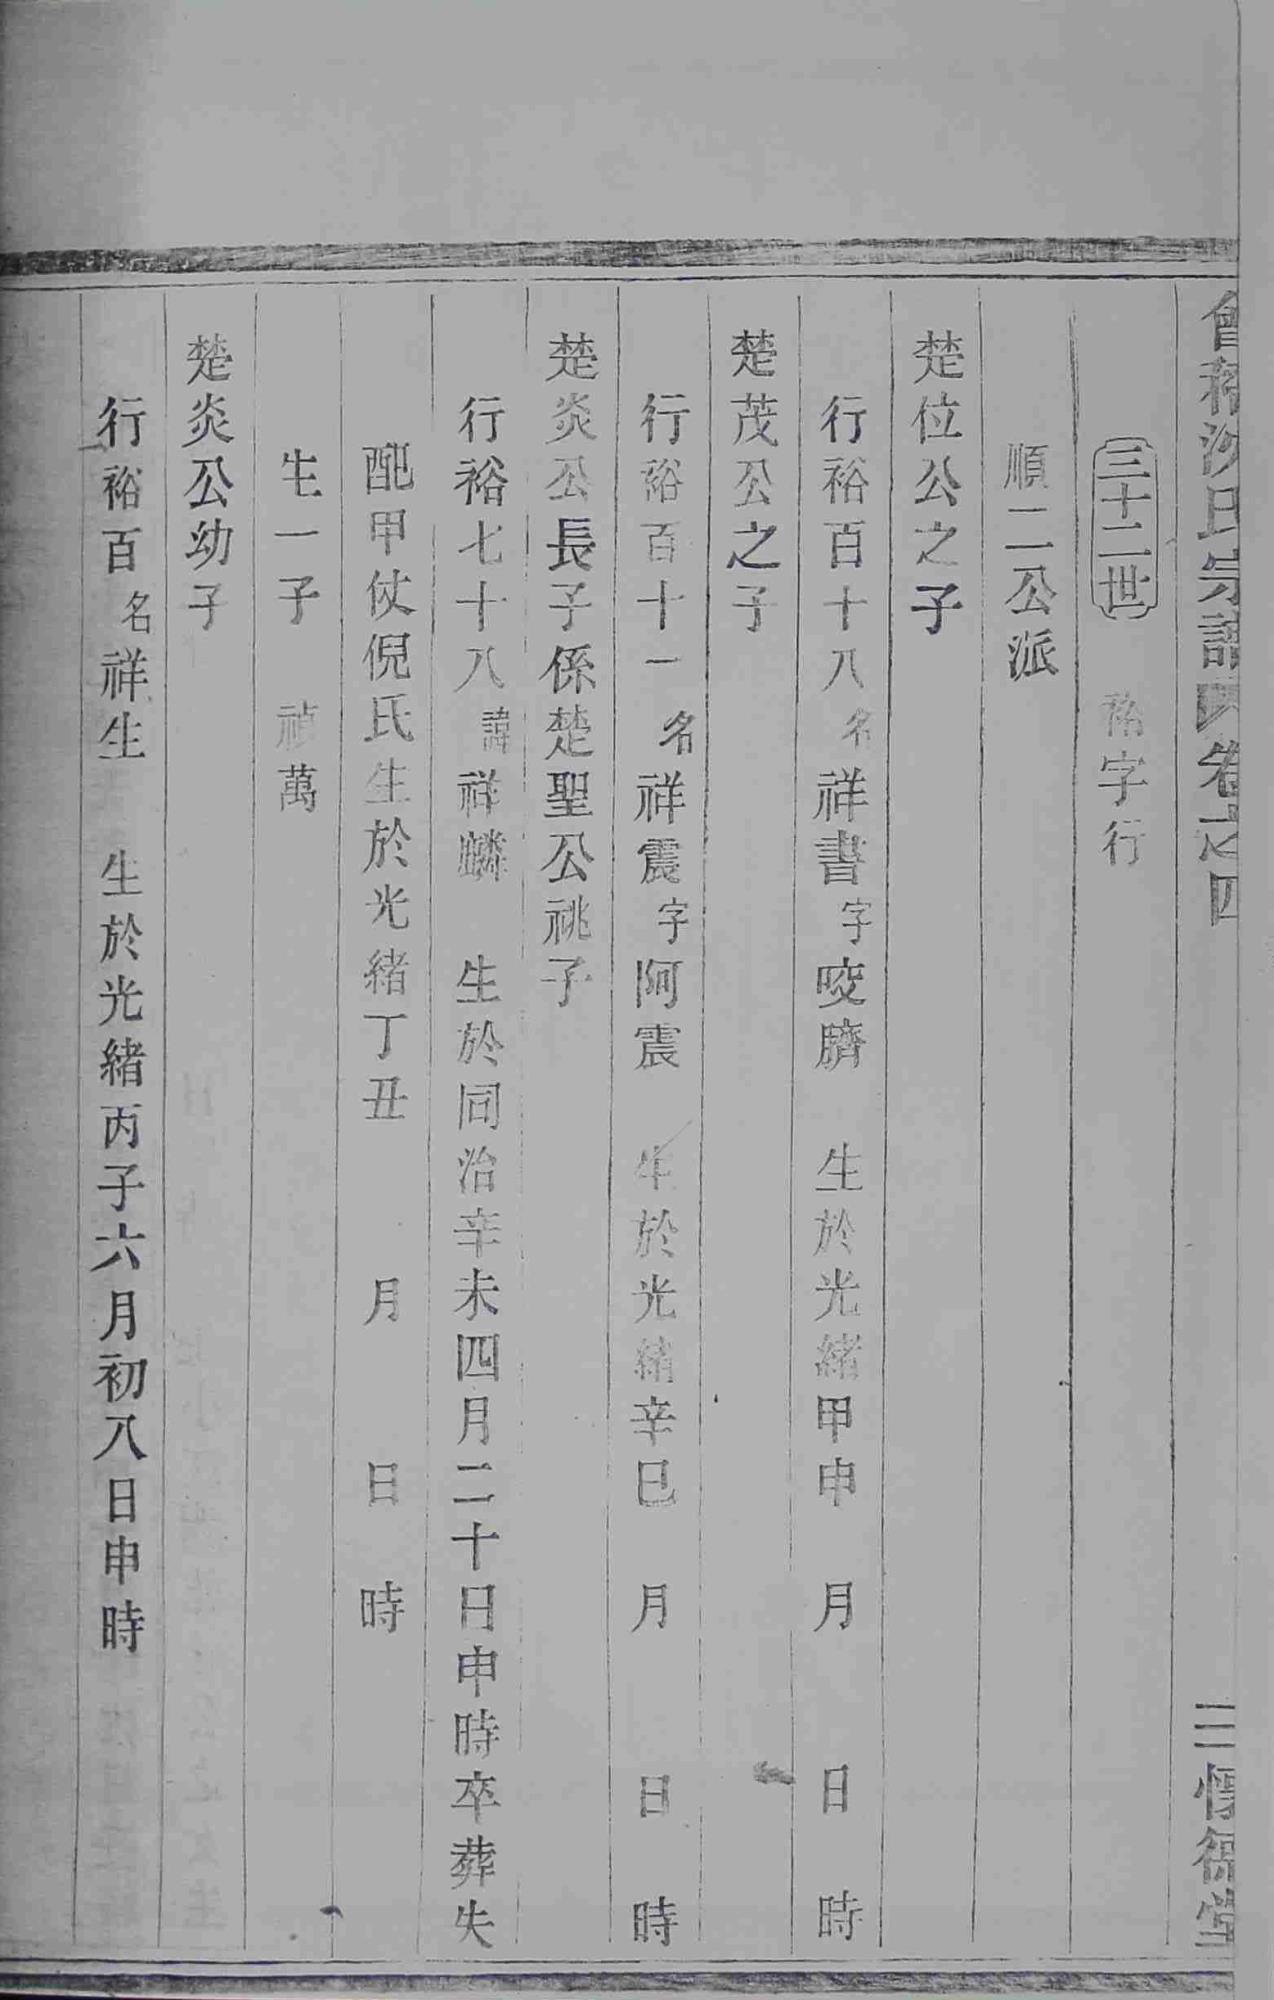 會稽沈氏宗譜 卷之四 三 懷德堂
三十二世 裕字行
順二公派
楚位公之子
行裕百十八名祥書字咬臍 生於光緒甲申 月 日 時
楚茂公之子
行裕百十一名祥震字阿震 生於光緒辛巳 月 日 時
楚炎公長子係楚聖公祧子
行裕七十八諱祥麟 生於同治辛未四月二十日申時卒葬失
配甲仗倪氏生於光緒丁丑 月 日 時
生一子 禎萬
楚炎公幼子
行裕百 名祥生 生於光緒丙子六月初八日申時